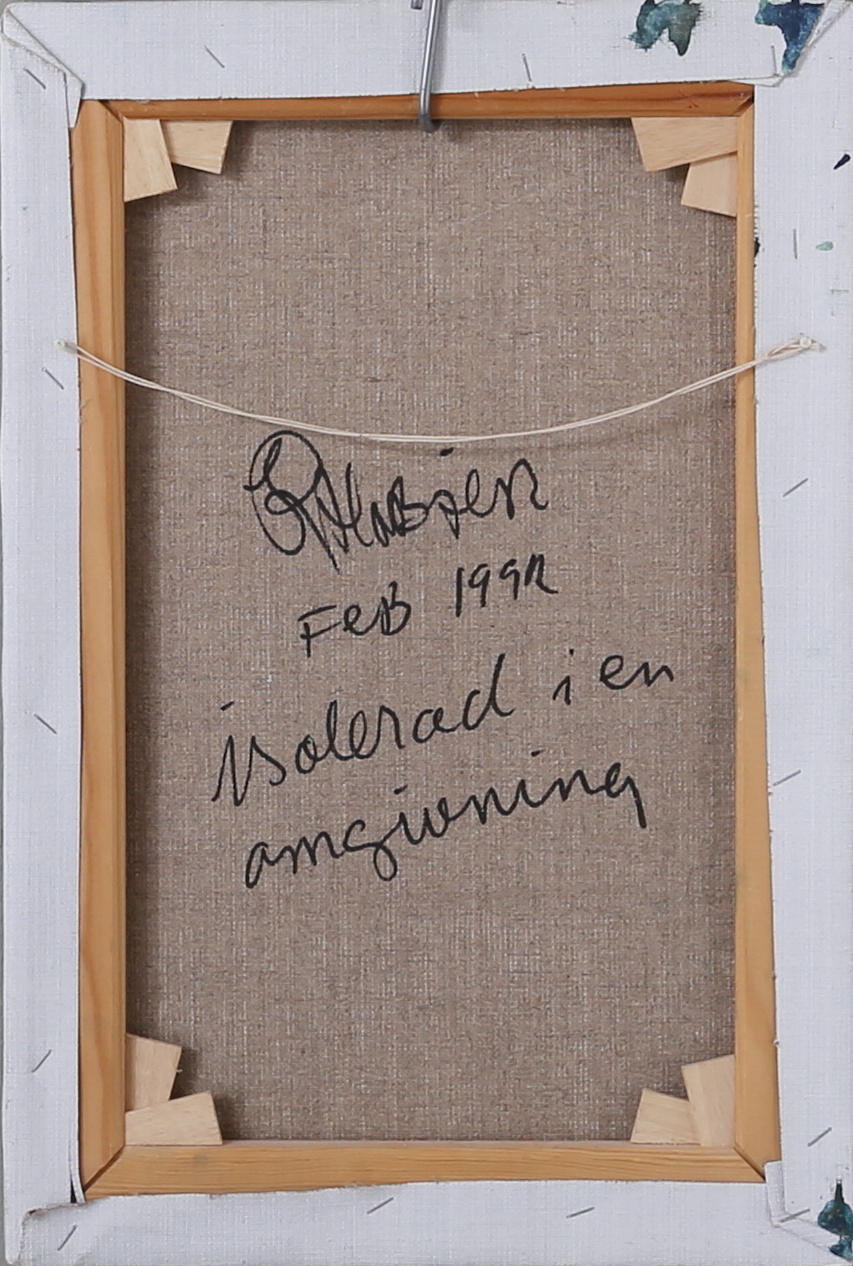 FeB 1992
isolerad i en
omgivning